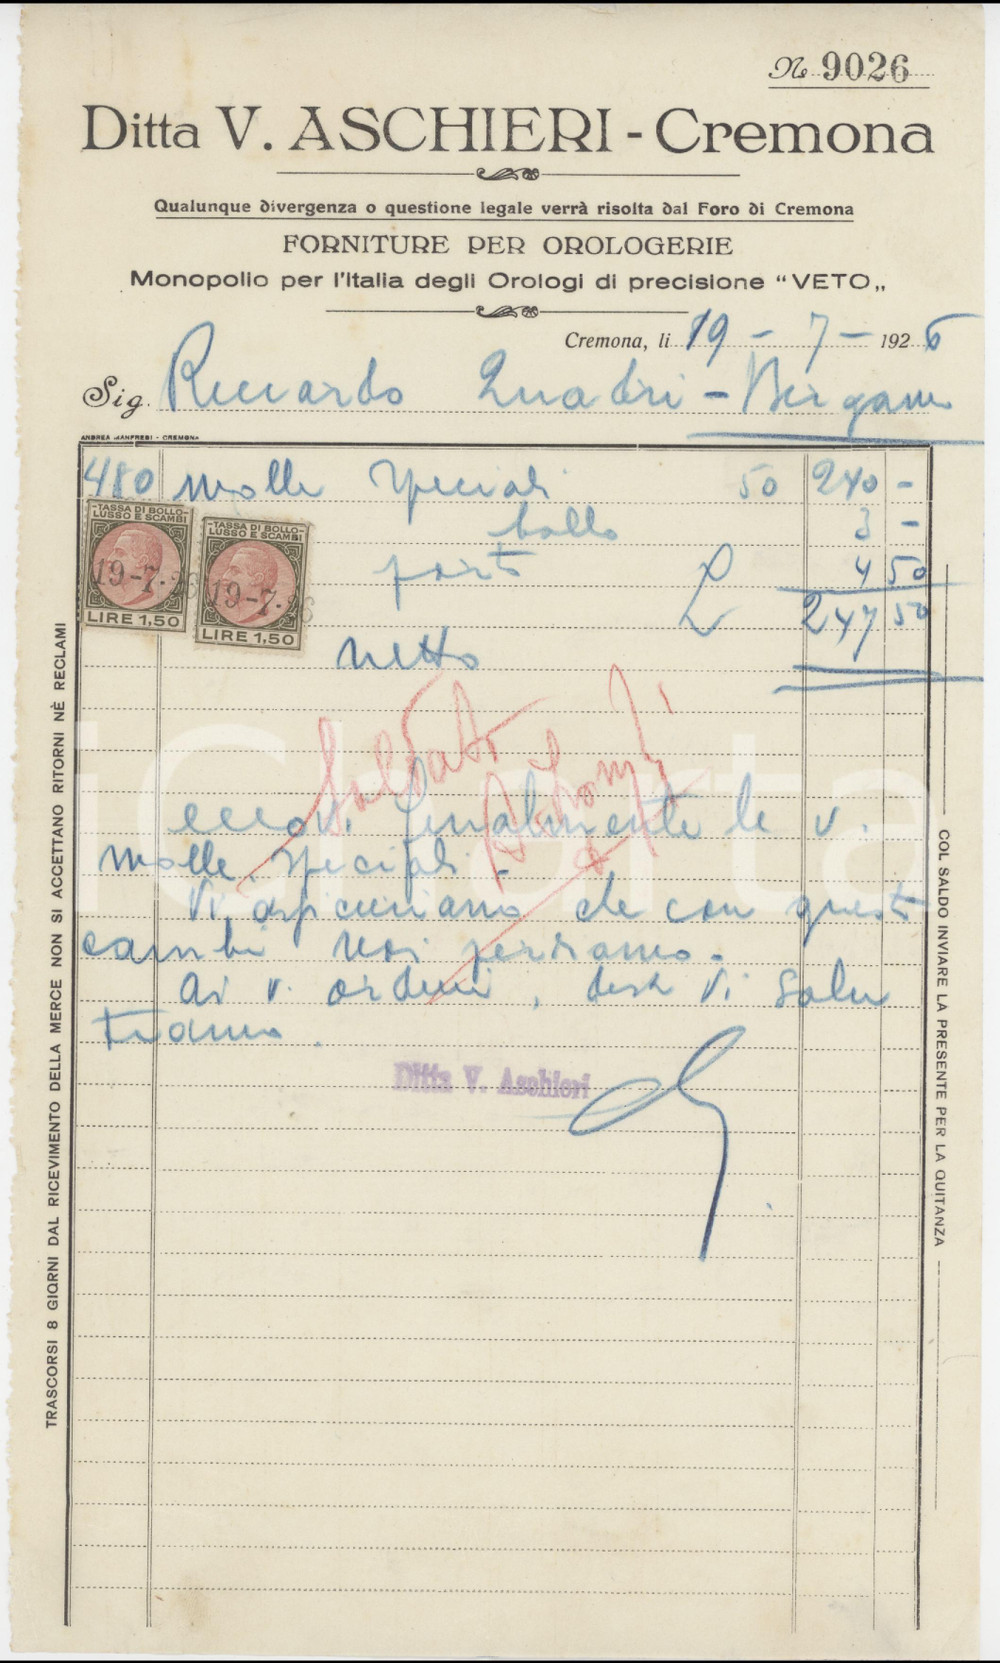 No 9026
Ditta V. ASCHIERI - Cremona
Qualunque divergenza o questione legale verrà risolta dal Foro di Cremona
FORNITURE PER OROLOGERIE
Monopolio per l'Italia degli Orologi di precisione "VETO„
Cremona, li 19 - 7 - 1926
Sig. Riccardo Quadri - Bergamo
ANDREA MANFREDI - CREMONA
480 molle speciali 50 240 -
bollo 3 -
porto 4 50
L 247 50
netto
TASSA DI BOLLO
LUSSO E SCAMBI
19-7-26
LIRE 1,50
TASSA DI BOLLO
LUSSO E SCAMBI
19-7-26
LIRE 1,50
Saldato
eccovi finalmente le v.
molle speciali.
Vi assicuriamo che con questi
cambi noi perdiamo.
Ai v. ordini, dist. Vi salu
tiamo.
Ditta V. Aschieri
TRASCORSI 8 GIORNI DAL RICEVIMENTO DELLA MERCE NON SI ACCETTANO RITORNI NÈ RECLAMI
COL SALDO INVIARE LA PRESENTE PER LA QUITANZA
iCharta